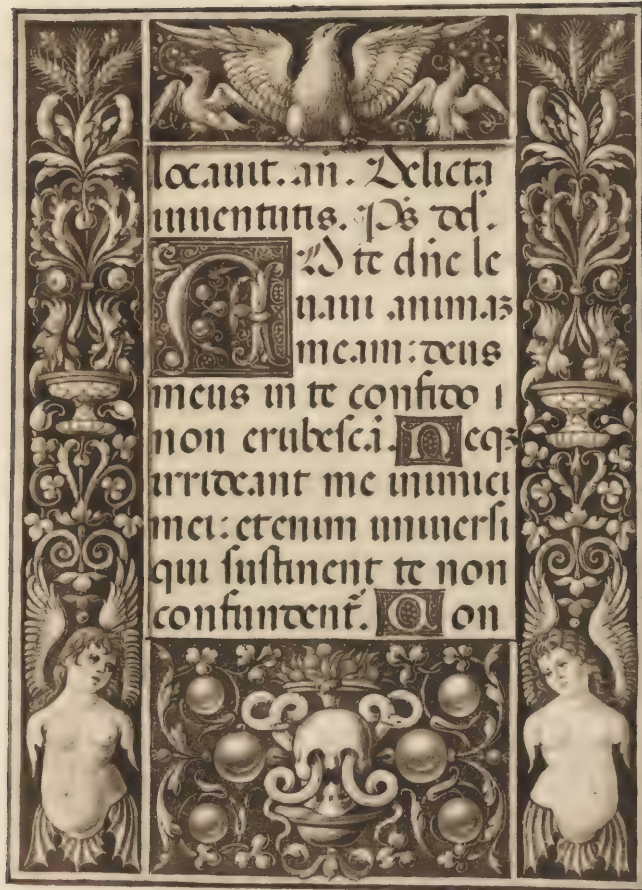 locauit. an̄. Delicta
iuuentutis. Ps̄ dd̄.
AD te dn̄e le
uaui animaꝫ
meam: deus
meus in te confido ı
non erubescā. Neqꝫ
irrideant me inimici
mei: etenim uniuersi
qui sustinent te non
confundent᷑. Con